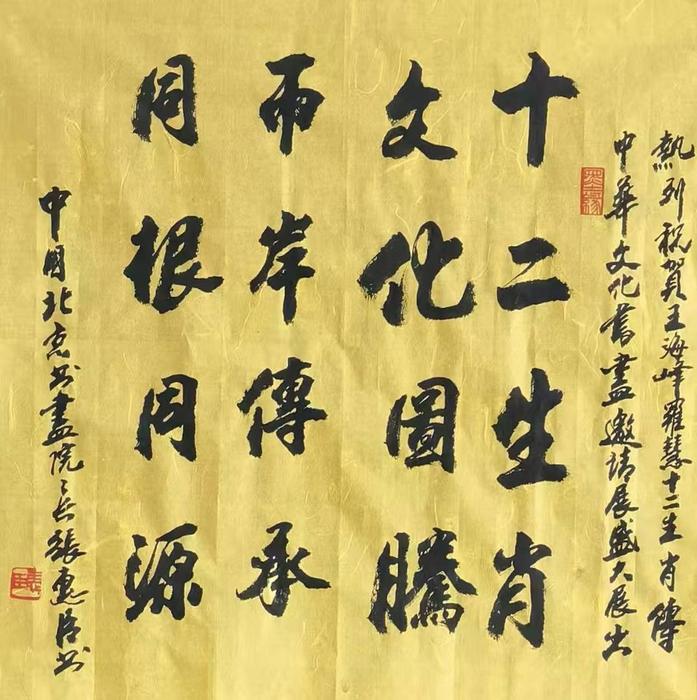 熱列祝賀王海峰羅慧十二生肖傳
中華文化書畫邀請展盛大展出
十二生肖
文化圖騰
两岸傳承
同根同源
中国北京书畫院々长張惠臣书